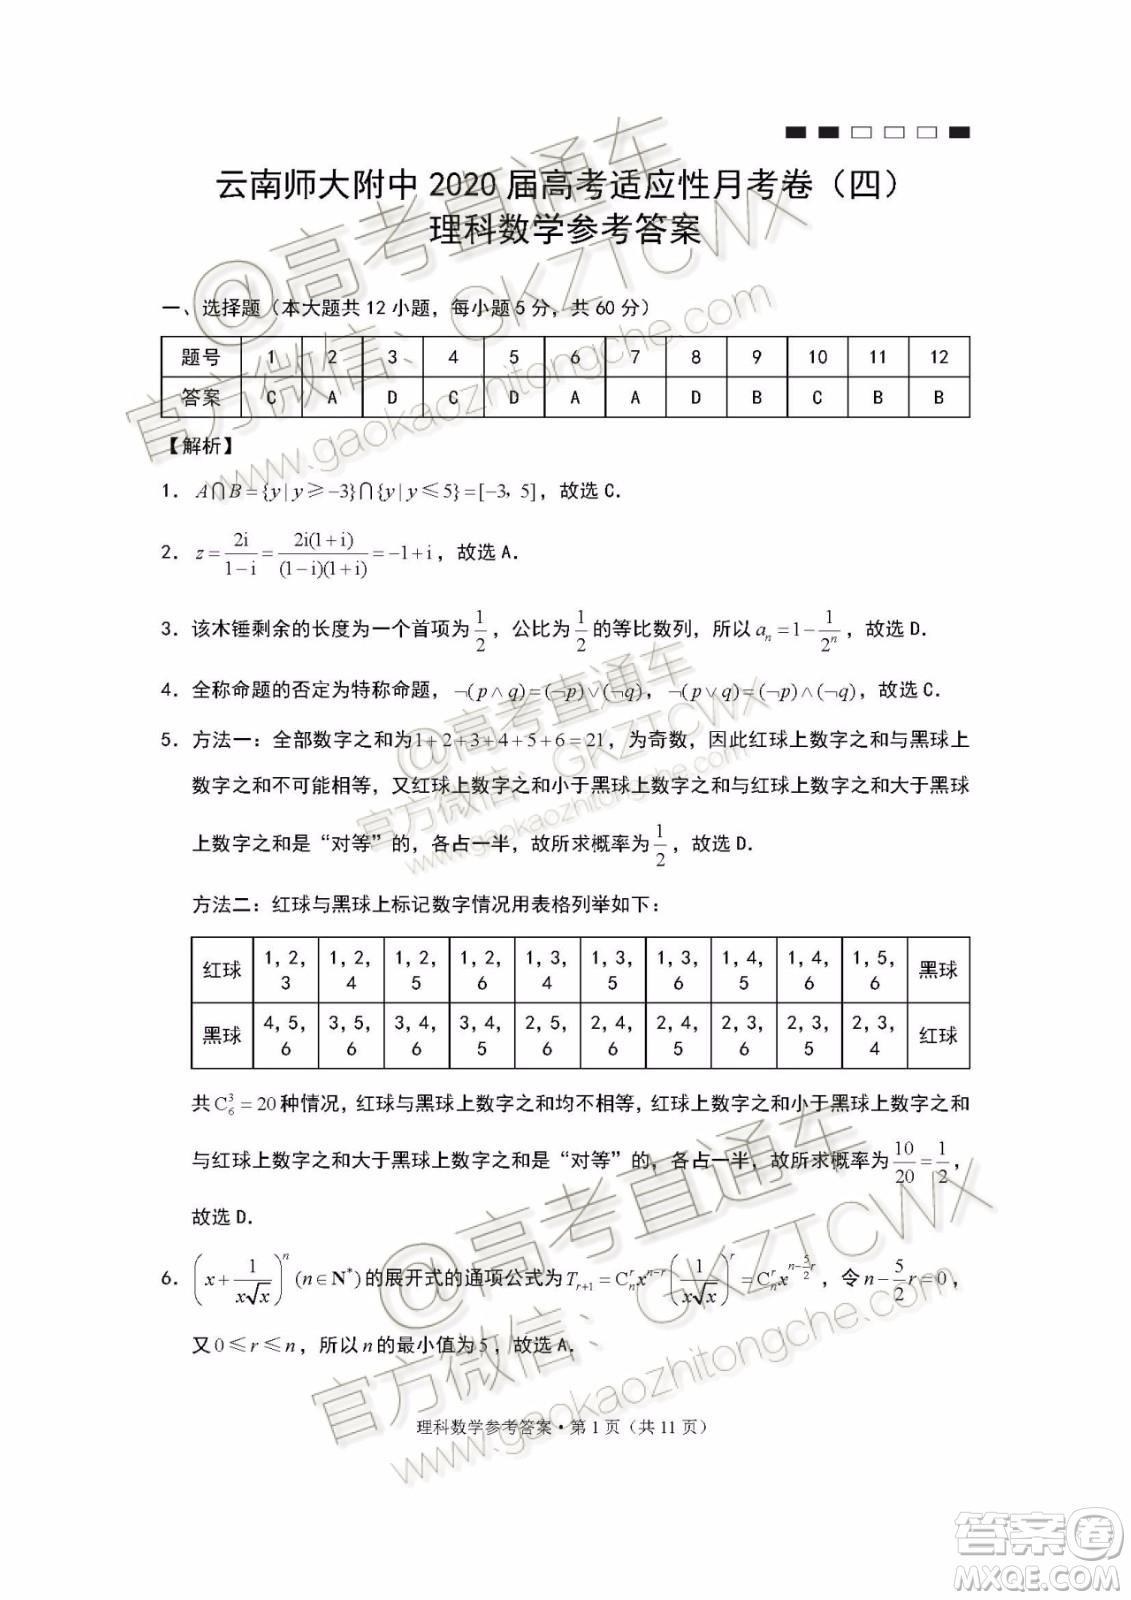 云南师大附中 2020 届高考适应性月考卷（四）
理科数学参考答案
一、选择题（本大题共 12 小题，每小题 5 分，共 60 分）
题号 1 2 3 4 5 6 7 8 9 10 11 12
答案 C A D C D A A D B C B B
【解析】
1．A∩B={y|y≥−3}∩{y|y≤5}=[−3，5]，故选 C．
2．z=2i/(1−i)=2i(1+i)/((1−i)(1+i))=−1+i，故选 A．
3．该木锤剩余的长度为一个首项为1/2，公比为1/2的等比数列，所以aₙ=1−1/2ⁿ，故选 D．
4．全称命题的否定为特称命题，¬(p∧q)=(¬p)∨(¬q)，¬(p∨q)=(¬p)∧(¬q)，故选 C．
5．方法一：全部数字之和为1+2+3+4+5+6=21，为奇数，因此红球上数字之和与黑球上
数字之和不可能相等，又红球上数字之和小于黑球上数字之和与红球上数字之和大于黑球
上数字之和是“对等”的，各占一半，故所求概率为1/2，故选 D．
方法二：红球与黑球上标记数字情况用表格列举如下：
红球 1，2，3 1，2，4 1，2，5 1，2，6 1，3，4 1，3，5 1，3，6 1，4，5 1，4，6 1，5，6 黑球
黑球 4，5，6 3，5，6 3，4，6 3，4，5 2，5，6 2，4，6 2，4，5 2，3，6 2，3，5 2，3，4 红球
共C₆³=20种情况，红球与黑球上数字之和均不相等，红球上数字之和小于黑球上数字之和
与红球上数字之和大于黑球上数字之和是“对等”的，各占一半，故所求概率为10/20=1/2，
故选 D．
6．(x+1/(x√x))ⁿ(n∈N*)的展开式的通项公式为Tᵣ₊₁=Cₙʳxⁿ⁻ʳ(1/(x√x))ʳ=Cₙʳx^(n−5/2r)，令n−5/2r=0，
又0≤r≤n，所以n的最小值为5，故选 A．
理科数学参考答案·第 1 页（共 11 页）
@高考直通车
官方微信：GKZTCWX
www.gaokaozhitongche.com
@高考直通车
官方微信：GKZTCWX
www.gaokaozhitongche.com
@高考直通车
官方微信：GKZTCWX
www.gaokaozhitongche.com
答案卷
MXQE.COM